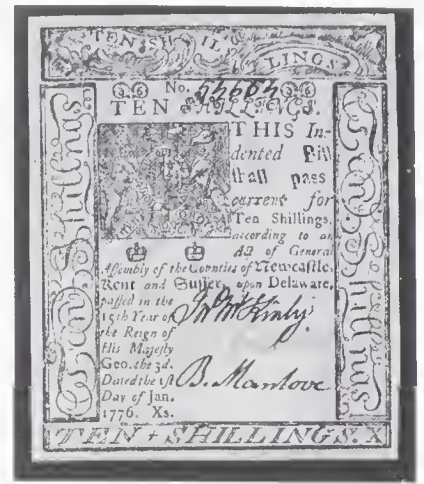 TEN SHIL LINGS
No. 54664
TEN SHILLINGS.
THIS In-
dented Bill
shall pass
current for
Ten Shillings,
according to an
Act of General
Assembly of the Counties of Newcastle,
Kent and Sussex, upon Delaware,
passed in the
15th Year of
the Reign of
His Majesty
Geo. the 3d.
Dated the 1st
Day of Jan.
1776. Xs.
Jno McKinly
B. Manlove
Ten Shillings
Ten Shillings
TEN + SHILLINGS. X